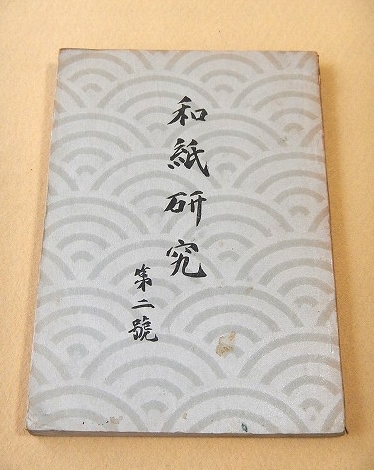 和紙研究
第二號